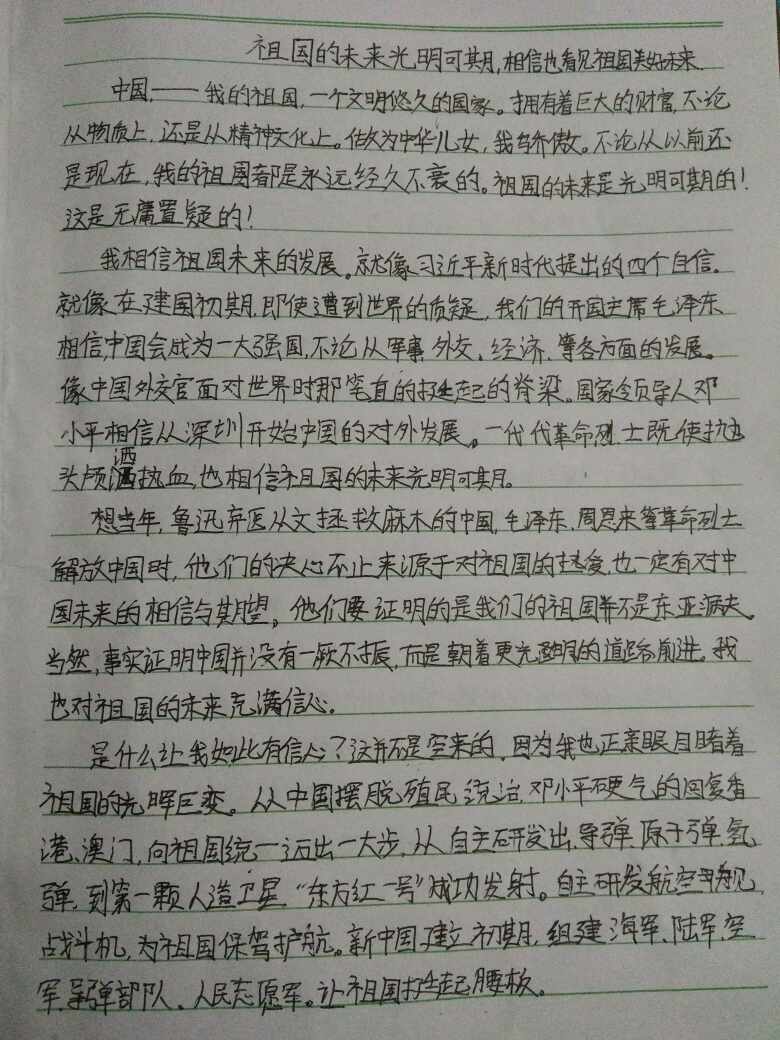 祖国的未来光明可期,相信也看见祖国美好未来.
中国,——我的祖国,一个文明悠久的国家。拥有着巨大的财富,不论
从物质上,还是从精神文化上。做为中华儿女,我骄傲。不论从以前还
是现在,我的祖国都是永远经久不衰的。祖国的未来是光明可期的!
这是无庸置疑的!
我相信祖国未来的发展。就像习近平新时代提出的四个自信.
就像在建国初期,即使遭到世界的质疑,我们的开国主席毛泽东
相信,中国会成为一大强国,不论从军事、外交、经济、等各方面的发展。
像中国外交官面对世界时那笔直的挺起的脊梁。国家领导人邓
小平相信从深圳开始,中国的对外发展。一代代革命烈士既使抛
头颅洒热血,也相信祖国的未来光明可期。
想当年,鲁迅弃医从文拯救麻木的中国,毛泽东、周恩来等革命烈士
解放中国时,他们的决心不止来源于对祖国的热爱,也一定有对中
国未来的相信与期望。他们要证明的是我们的祖国并不是东亚病夫。
当然,事实证明中国并没有一蹶不振,而是朝着更光明的道路前进。我
也对祖国的未来充满信心.
是什么让我如此有信心?这并不是空来的,因为我也正亲眼目睹着
祖国的光辉巨变。从中国摆脱殖民统治,邓小平硬气的回复香
港、澳门,向祖国统一迈出一大步,从自主研发出,导弹、原子弹、氢
弹,到第一颗人造卫星“东方红一号”成功发射。自主研发航空母舰,
战斗机,为祖国保驾护航。新中国建立初期,组建海军、陆军、空
军、导弹部队、人民志愿军。让祖国挺起腰板。